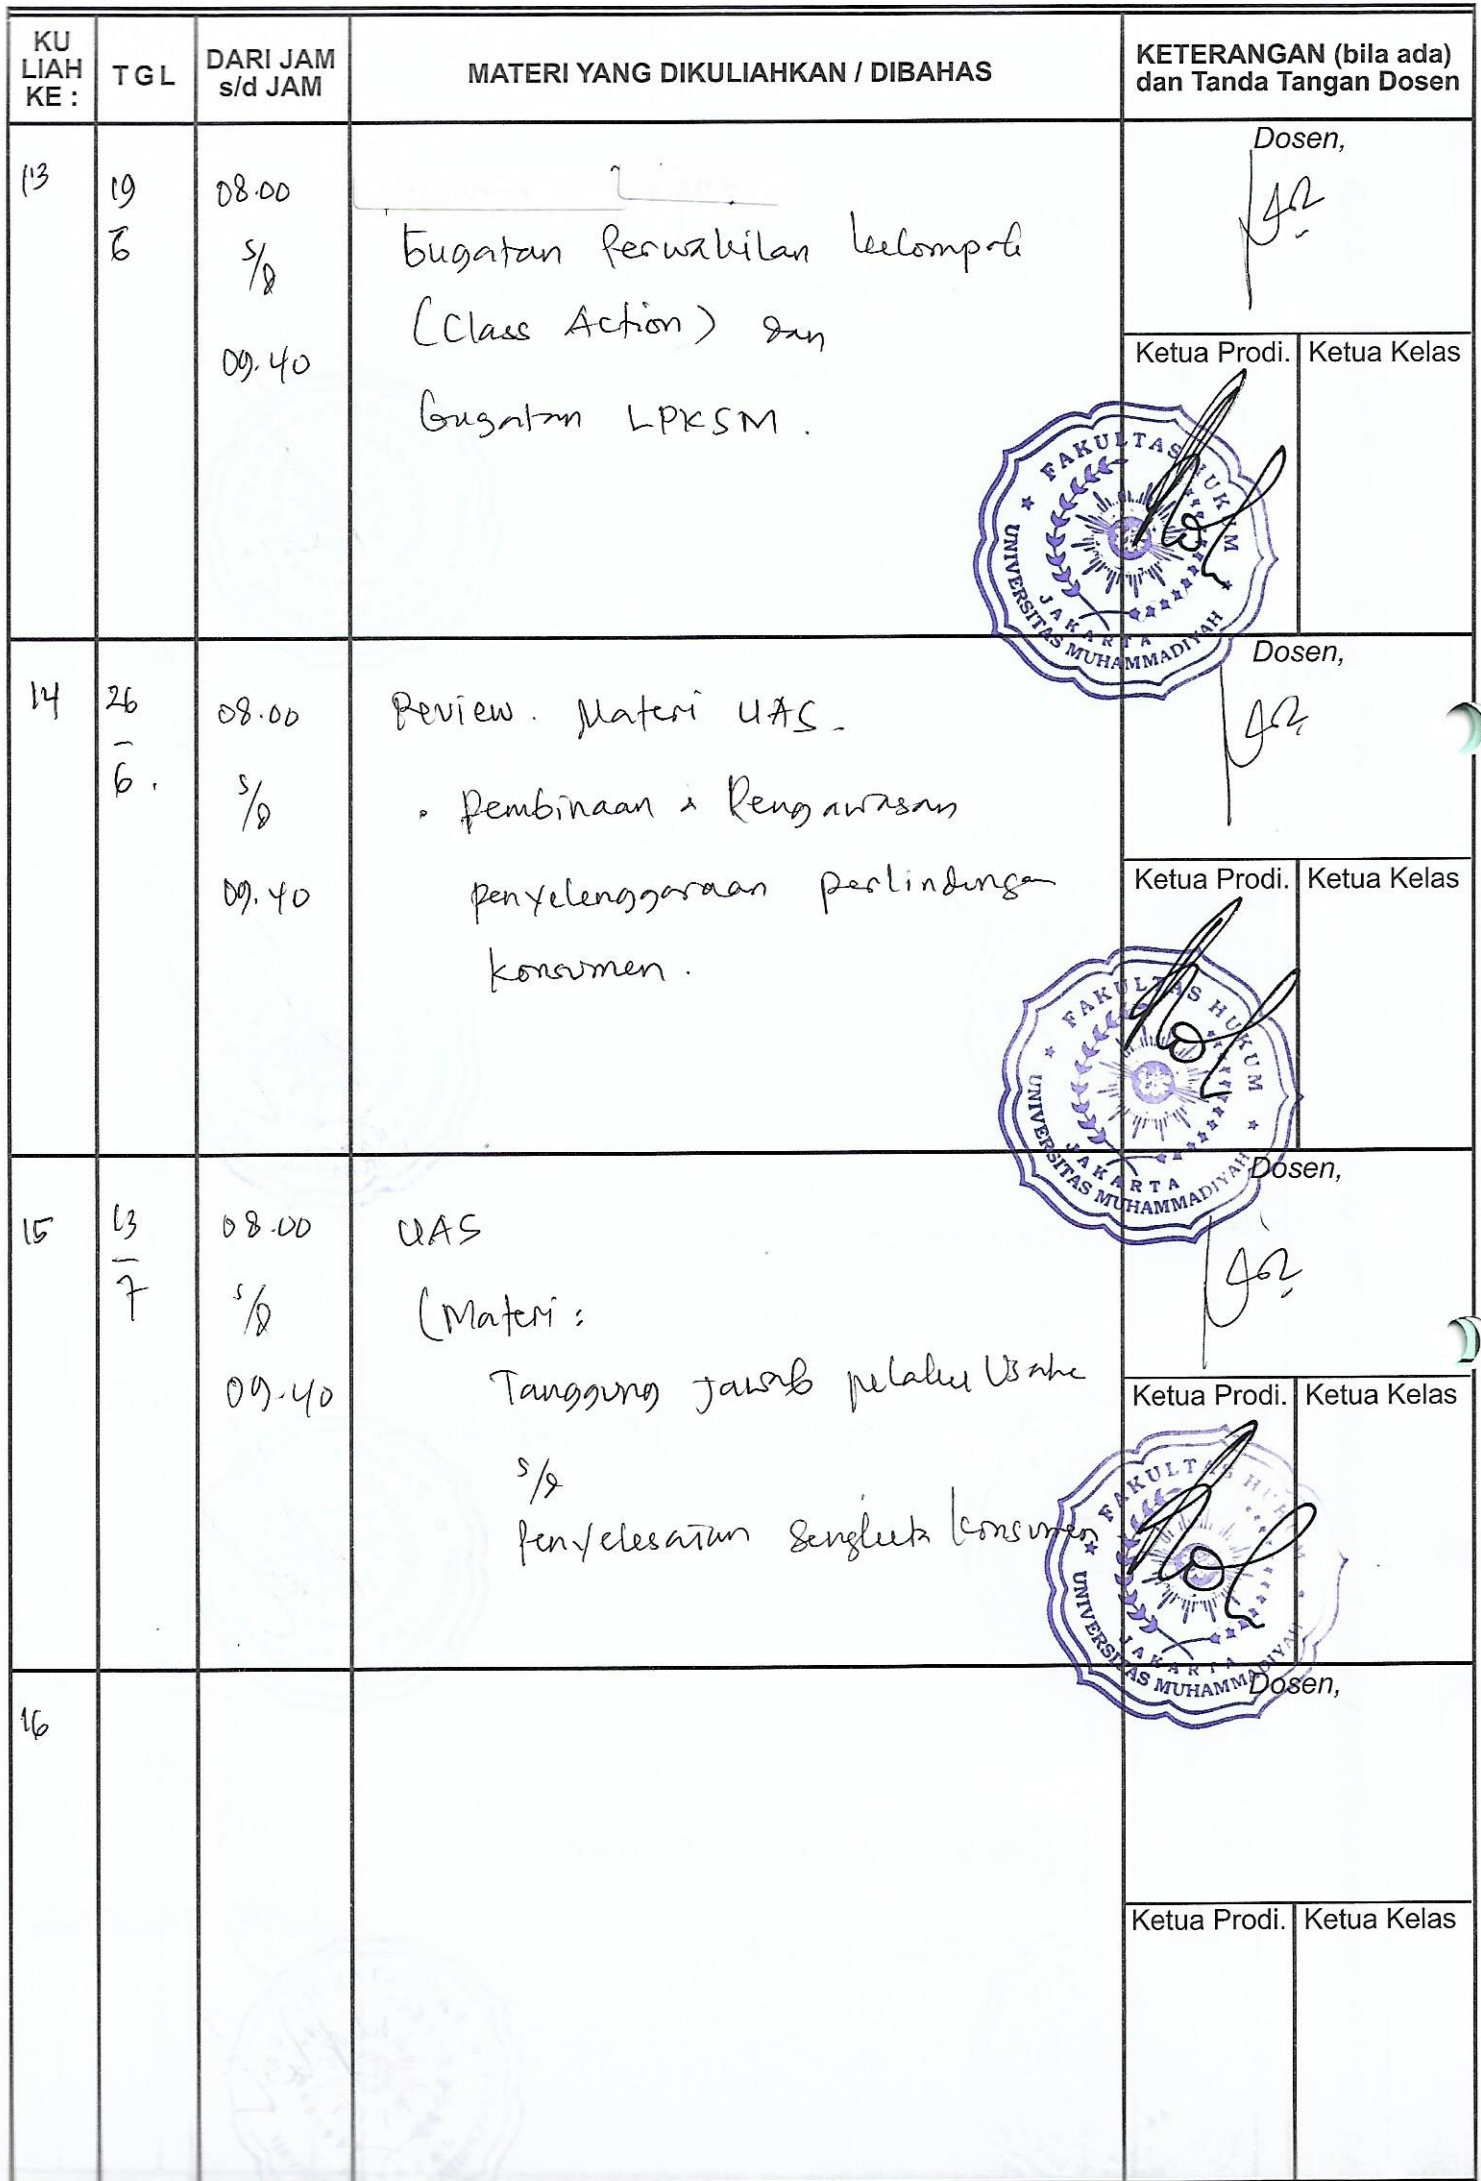 KU LIAH KE :
TGL
DARI JAM s/d JAM
MATERI YANG DIKULIAHKAN / DIBAHAS
KETERANGAN (bila ada) dan Tanda Tangan Dosen
13
19
6
08.00
s/d
09.40
Gugatan Perwakilan kelompok
(Class Action) dan
Gugatan LPKSM.
Dosen,
Ketua Prodi.
Ketua Kelas
FAKULTAS HUKUM
UNIVERSITAS MUHAMMADIYAH
JAKARTA
14
26
6.
08.00
s/d
09.40
Review. Materi UAS.
• Pembinaan & Pengawasan
penyelenggaraan perlindungan
konsumen.
Dosen,
Ketua Prodi.
Ketua Kelas
FAKULTAS HUKUM
UNIVERSITAS MUHAMMADIYAH
JAKARTA
15
13
7
08.00
s/d
09.40
UAS
(Materi :
Tanggung Jawab pelaku Usaha
s/d
Penyelesaian Sengketa Konsumen
Dosen,
Ketua Prodi.
Ketua Kelas
FAKULTAS HUKUM
UNIVERSITAS MUHAMMADIYAH
JAKARTA
16
Dosen,
Ketua Prodi.
Ketua Kelas